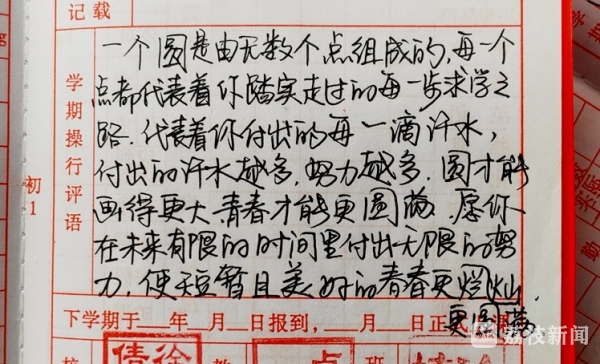 记载
学期操行评语
初1
一个圆是由无数个点组成的,每一个
点都代表着你踏实走过的每一步求学之
路.代表着你付出的每一滴汗水,
付出的汗水越多,努力越多.圆才能
画得更大.青春才能更圆满.愿你
在未来有限的时间里付出无限的努
力,使短暂且美好的青春更灿烂,
更圆满
下学期于 年 月 日报到, 月 日正
荔枝新闻